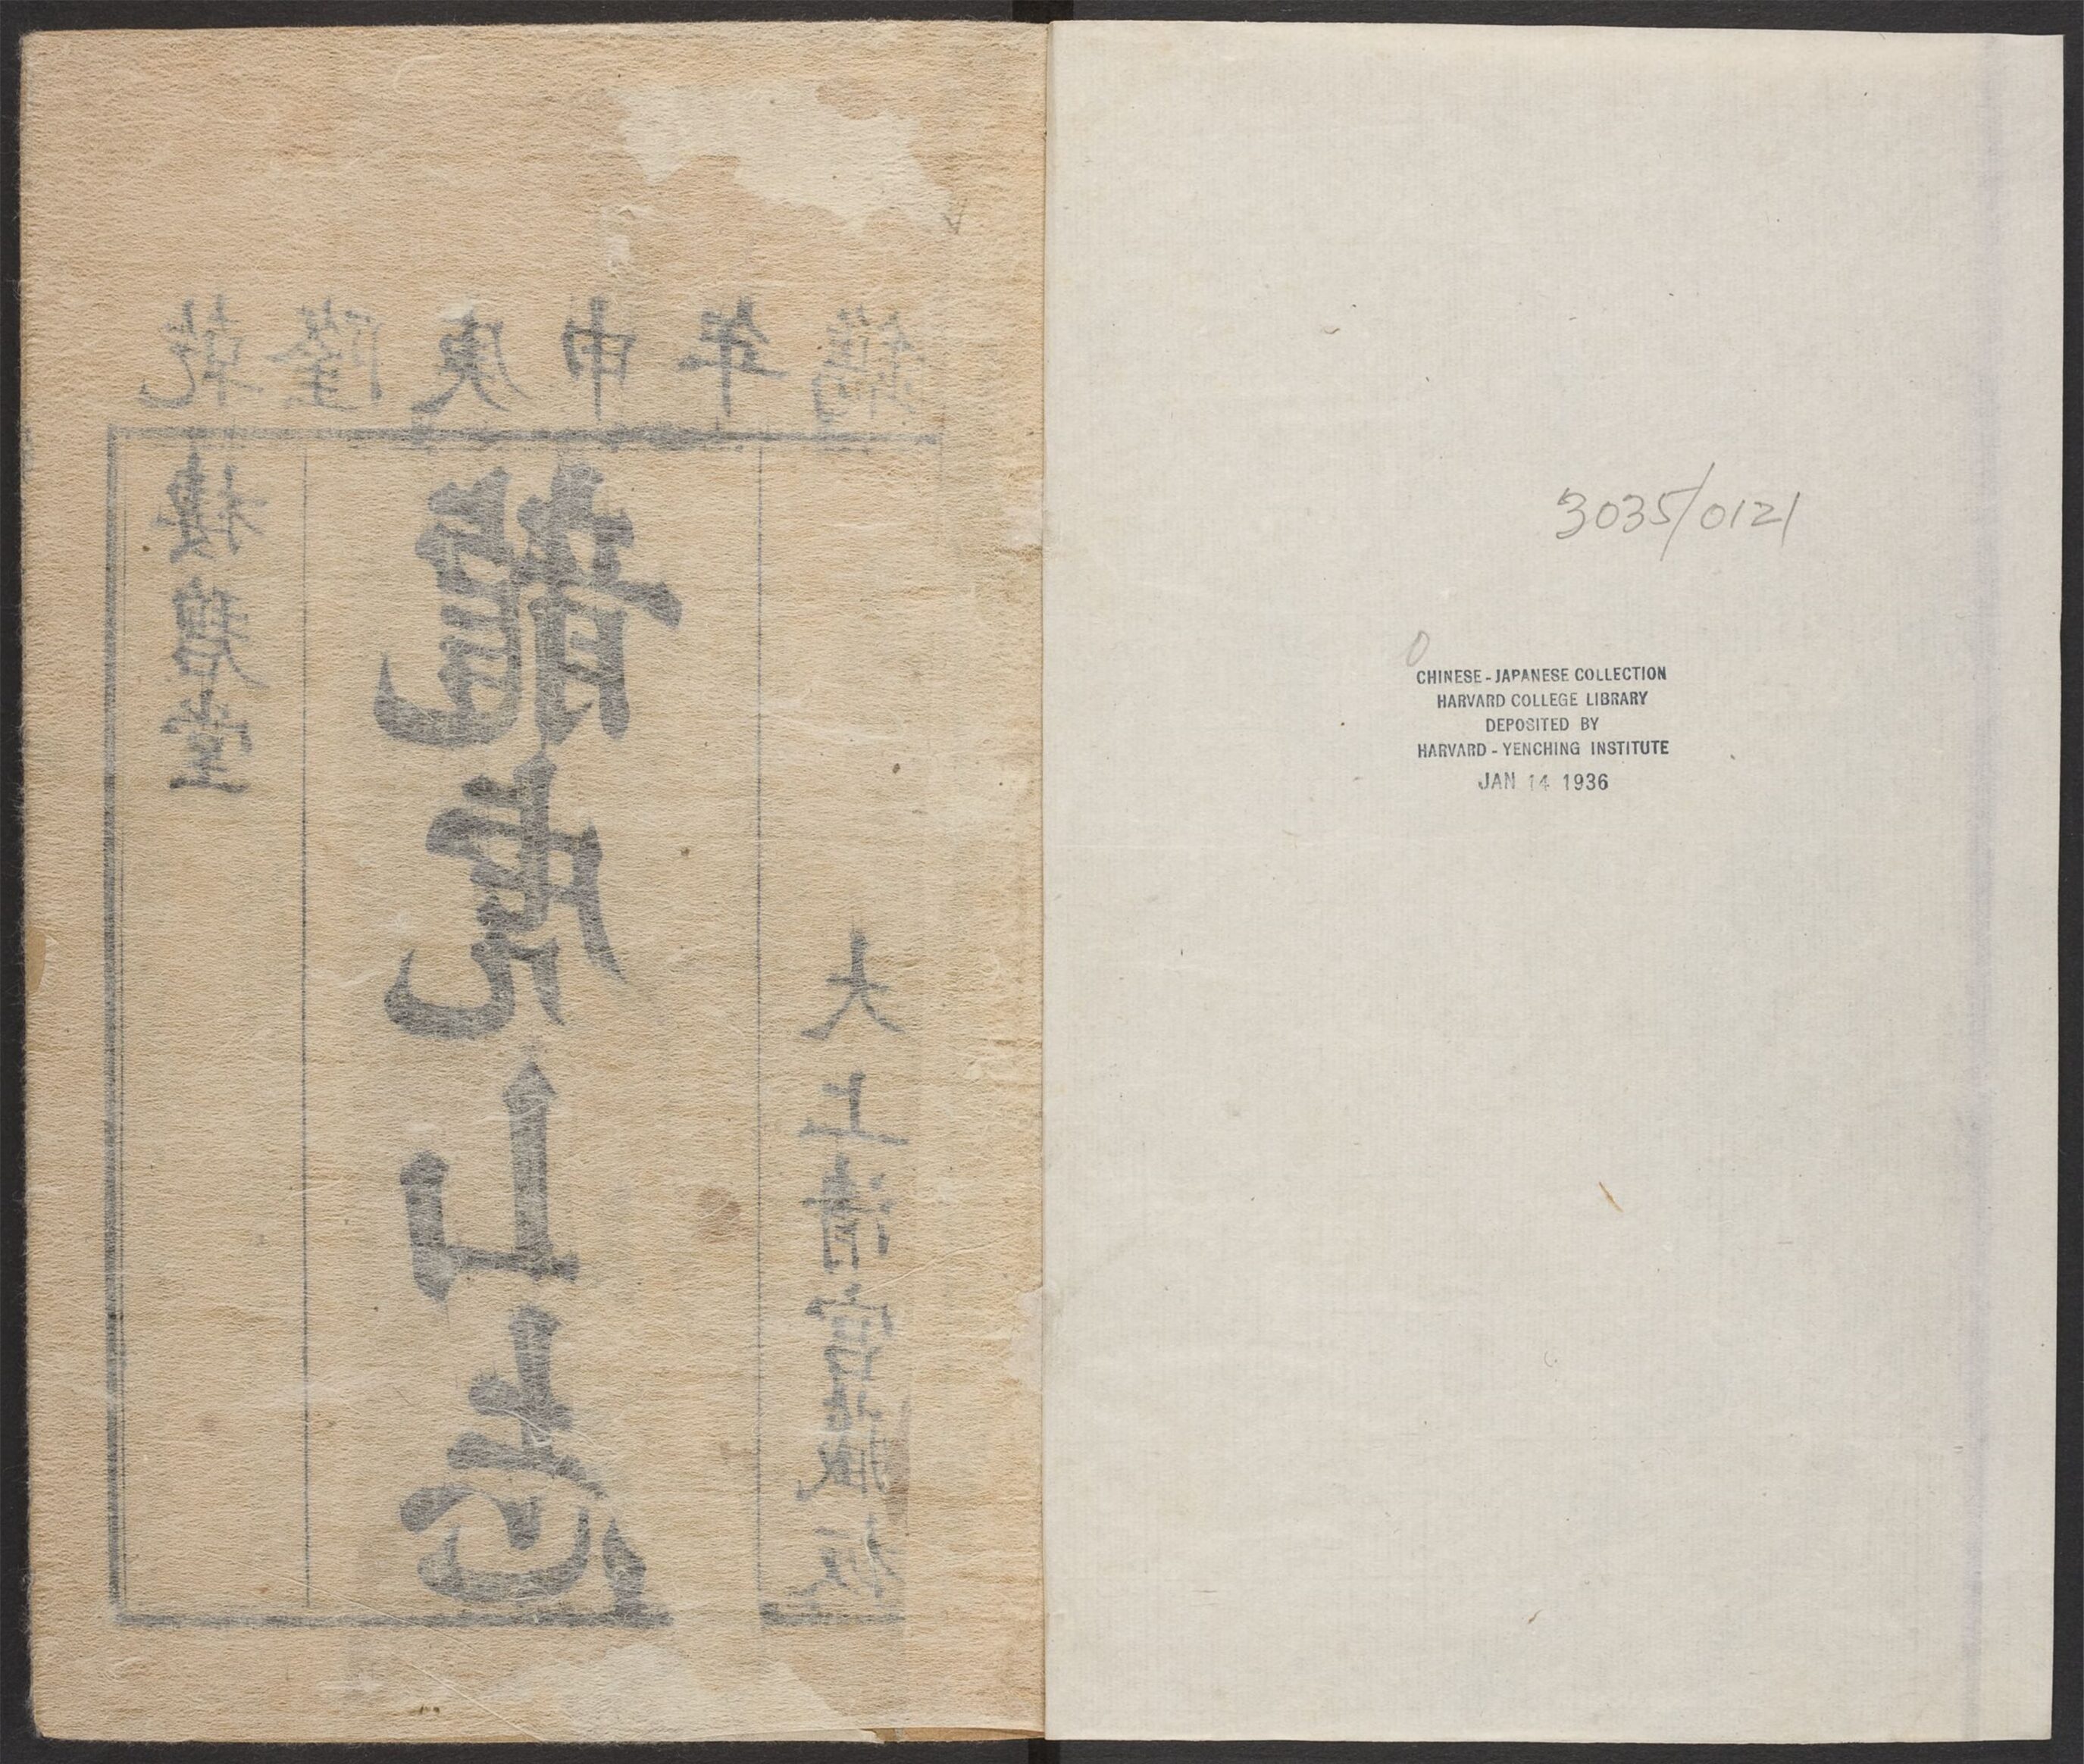 乾隆庚申年鐫
碧堂
龍虎山志
大上清宮藏板
3035/0121
CHINESE - JAPANESE COLLECTION
HARVARD COLLEGE LIBRARY
DEPOSITED BY
HARVARD - YENCHING INSTITUTE
JAN 14 1936